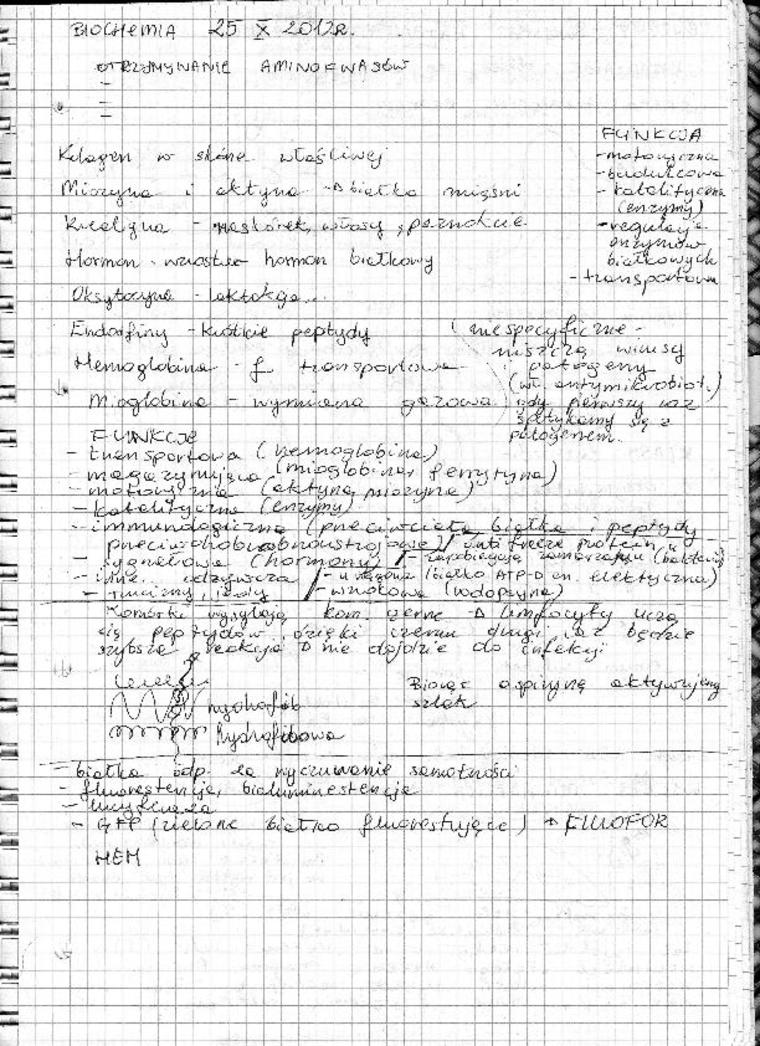 BIOCHEMIA 25 X 2012R.
OTRZYMYWANIE AMINOKWASÓW
-
-
-
Kolagen w skórze właściwej
Miozyna i aktyna → białka mięśni
Kreatyna - naskórek, włosy, paznokcie
Hormon wzrostu hormon białkowy
Oksytocyna - laktacja...
Endorfiny - krótkie peptydy
Hemoglobina - f transportowa
Mioglobina - wymiana gazowa
FUNKCJA
- motoryczna
- budulcowa
- katalityczna
(enzymy)
- regulacja
enzymów
białkowych
- transportowa
(niespecyficzne -
niszczą wirusy
i patogeny
(wł. antymikrobiot.)
gdy pierwszy raz
spotykamy się z
patogenem.
FUNKCJE
- transportowa (hemoglobina)
- magazynująca (mioglobina, ferrytyna)
- motoryczna (aktyna, miozyna)
- katalityczna (enzymy)
- immunologiczna (przeciwciała białka i peptydy
przeciwdrobnoustrojowe) / antifreeze protein
- sygnałowa (hormony) / - zapobiegają zamarzaniu (bakterie)
- inne: odżywcza / - u węgorza (białko ATP → en. elektryczna)
- trucizny, jady / - wzrokowa (rodopsyna)
Komórki wysyłają kom. żerne → limfocyty uczą
się peptydów dzięki czemu drugi raz będzie
szybsza reakcja → nie dojdzie do infekcji
Biorąc aspirynę aktywujemy
szlak
hydrofib
Hydrofibowa
- białka odp. za wyczuwanie samotności
- fluorescencja, bioluminescencja
- lucyferaza
- GFP (zielone białko fluorestujące) → FLUOFOR
HEM